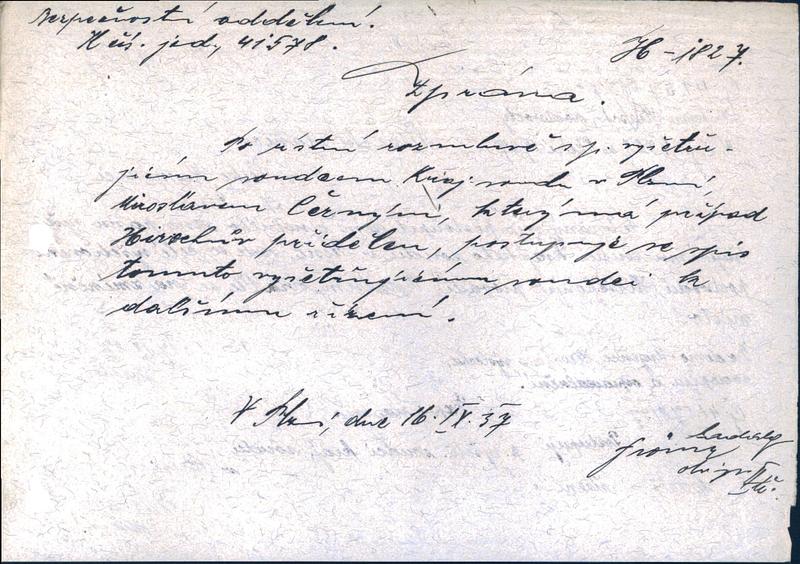 Bezpečnostní oddělení.
K čís. jed. 41578.
H-1827.
Zpráva.
Po ústní rozmluvě s p. vyšetřu-
jícím soudcem Kraj. soudu v Plzni,
Miroslavem Černým, který má případ
Hirschův přidělen, postupuje se spis
tomuto vyšetřujícímu soudci k
dalšímu řízení.
V Plzni, dne 16. IX. 37